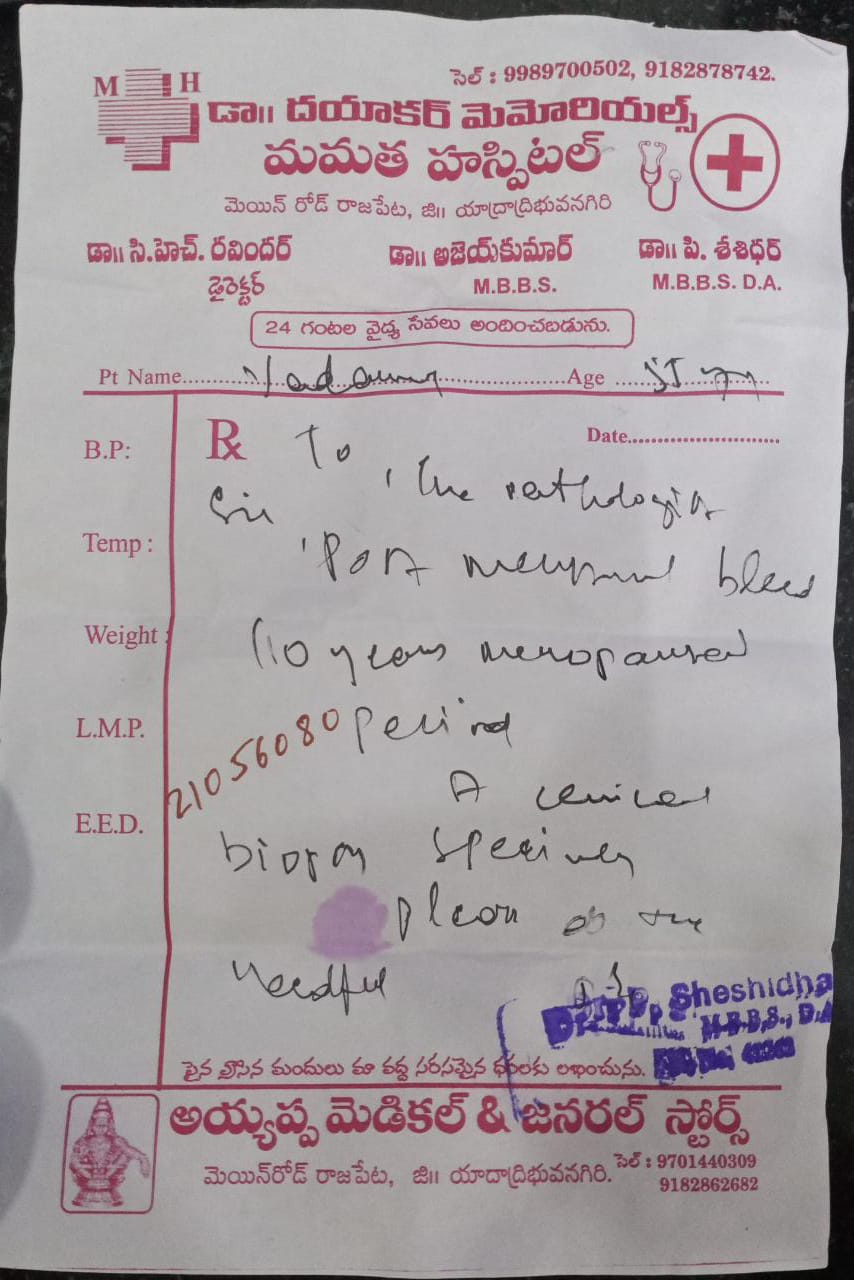 M H
సెల్ : 9989700502, 9182878742.
డా॥ దయాకర్ మెమోరియల్స్
మమత హస్పిటల్
మెయిన్ రోడ్ రాజపేట, జి॥ యాద్రాద్రిభువనగిరి
డా॥ సి.హెచ్. రవిందర్ డా॥ అజెయ్‌కుమార్ డా॥ పి. శశిధర్
డైరెక్టర్ M.B.B.S. M.B.B.S. D.A.
24 గంటల వైద్య సేవలు అందించబడును.
Pt Name Age
B.P: Rx To Date
Sir , The pathologist
Temp :
Post menopausal bleed
Weight : 10 years menopausal
L.M.P. 21056080 period
A cervical
E.E.D.
biopsy specimen
Please do the
needful
Sheshidha
M.B.B.S., D.A
పైన వ్రాసిన మందులు మా వద్ద సరసమైన ధరలకు లభించును.
అయ్యప్ప మెడికల్ & జనరల్ స్టోర్స్
మెయిన్‌రోడ్ రాజపేట, జి॥ యాదాద్రిభువనగిరి. సెల్ : 9701440309
9182862682